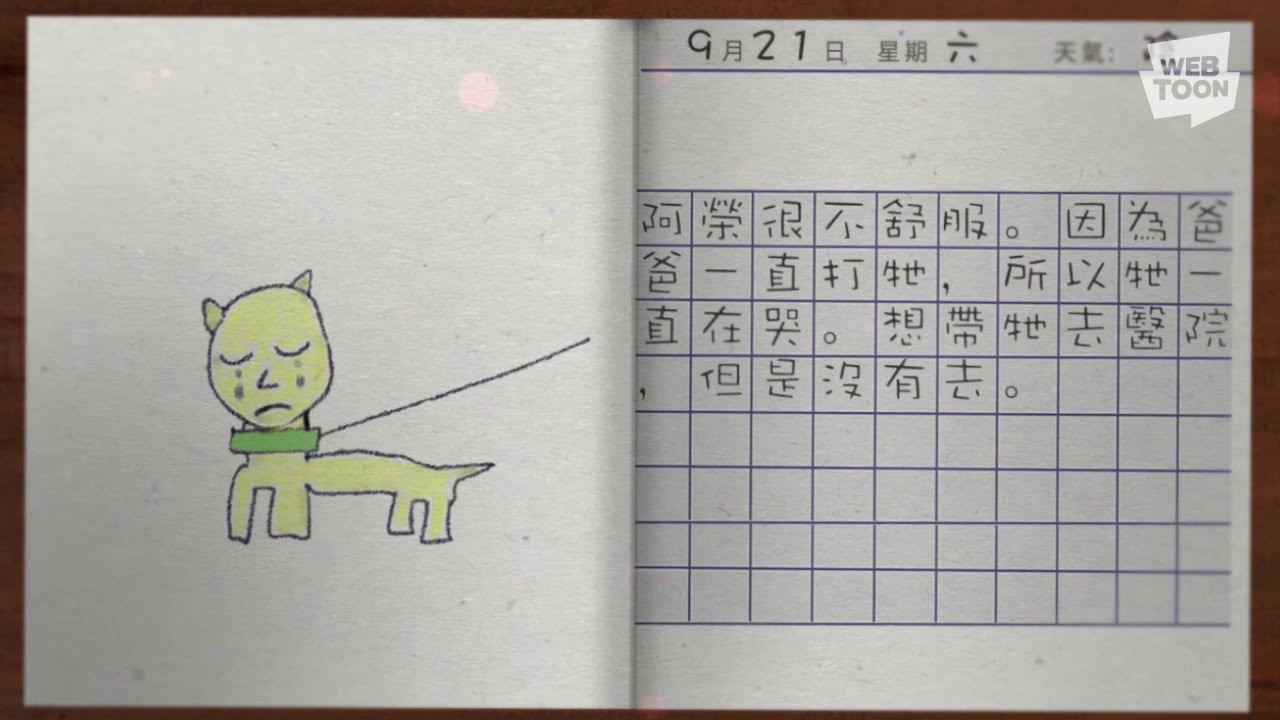 9月21日 星期六 天氣:
WEB
TOON
阿榮很不舒服。因為爸
爸一直打牠，所以牠一
直在哭。想帶牠去醫院
，但是沒有去。